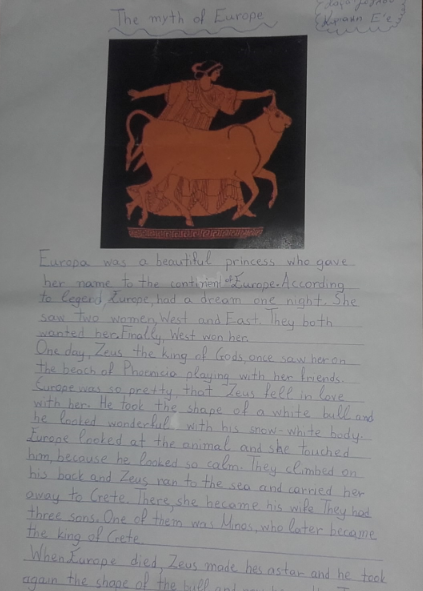 The myth of Europe
Europa was a beautiful princess who gave
her name to the continent of Europe. According
to legend, Europe, had a dream one night. She
saw two women, West and East. They both
wanted her. Finally, West won her.
One day, Zeus the king of Gods, once saw her on
the beach of Phoenicia playing with her friends.
Europe was so pretty, that Zeus fell in love
with her. He took the shape of a white bull and
he looked wonderful with his snow-white body.
Europe looked at the animal and she touched
him, because he looked so calm. They climbed on
his back and Zeus ran to the sea and carried her
away to Crete. There, she became his wife. They had
three sons. One of them was Minos, who later became
the king of Crete.
When Europe died, Zeus made her a star and he took
again the shape of the bull and